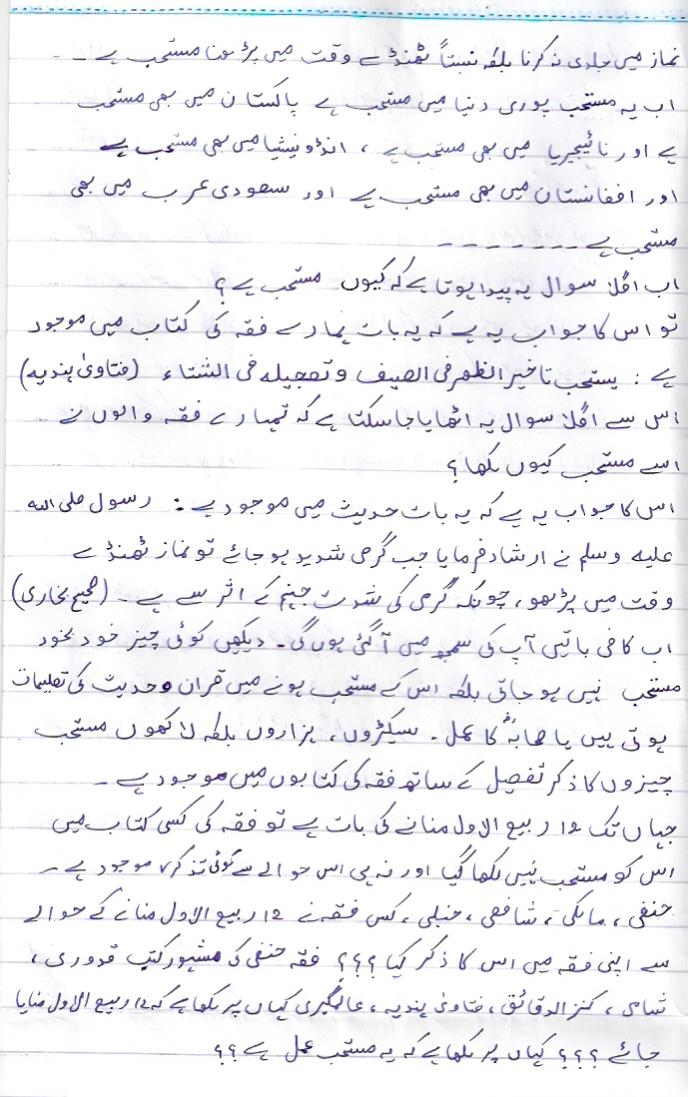 نماز میں جلدی نہ کرنا بلکہ نسبتاً ٹھنڈے وقت میں پڑھنا مستحب ہے ۔۔
اب یہ مستحب پوری دنیا میں مستحب ہے پاکستان میں بھی مستحب
ہے اور نائیجیریا میں بھی مستحب ہے ، انڈونیشیا میں بھی مستحب ہے
اور افغانستان میں بھی مستحب ہے اور سعودی عرب میں بھی
مستحب ہے ۔۔۔۔۔۔۔۔
اب اگلا سوال یہ پیدا ہوتا ہے کہ کیوں مستحب ہے ؟
تو اس کا جواب یہ ہے کہ یہ بات ہمارے فقہ کی کتاب میں موجود
ہے : یستحب تاخیر الظہر فی الصیف وتعجیلہ فی الشتاء (فتاویٰ ہندیہ)
اس سے اگلا سوال یہ اٹھایا جا سکتا ہے کہ تمہارے فقہ والوں نے
اسے مستحب کیوں لکھا ؟
اس کا جواب یہ ہے کہ یہ بات حدیث میں موجود ہے : رسول صلی اللہ
علیہ وسلم نے ارشاد فرمایا جب گرمی شدید ہو جائے تو نماز ٹھنڈے
وقت میں پڑھو ، چونکہ گرمی کی شدت جہنم کے اثر سے ہے ۔ (صحیح بخاری)
اب کافی باتیں آپ کی سمجھ میں آ گئی ہوں گی ۔ دیکھں کوئی چیز خود بخود
مستحب نہیں ہو جاتی بلکہ اس کے مستحب ہونے میں قران و حدیث کی تعلیمات
ہوتی ہیں یا صحابہؓ کا عمل ۔ سیکڑوں ، ہزاروں بلکہ لاکھوں مستحب
چیزوں کا ذکر تفصیل کے ساتھ فقہ کی کتابوں میں موجود ہے ۔
جہاں تک 12 ربیع الاول منانے کی بات ہے تو فقہ کی کسی کتاب میں
اس کو مستحب نہیں لکھا گیا اور نہ ہی اس حوالے سے کوئی تذکرہ موجود ہے ۔
حنفی ، مالکی ، شافعی ، حنبلی ، کس فقہ نے 12 ربیع الاول منانے کے حوالے
سے اپنی فقہ میں اس کا ذکر کیا ؟؟؟ فقہ حنفی کی مشہور کتب قدوری ،
شامی ، کنز الدقائق ، فتاویٰ ہندیہ ، عالمگیری کہاں پر لکھا ہے کہ 12 ربیع الاول منایا
جائے ؟؟؟ کہاں پر لکھا ہے کہ یہ مستحب عمل ہے ؟؟